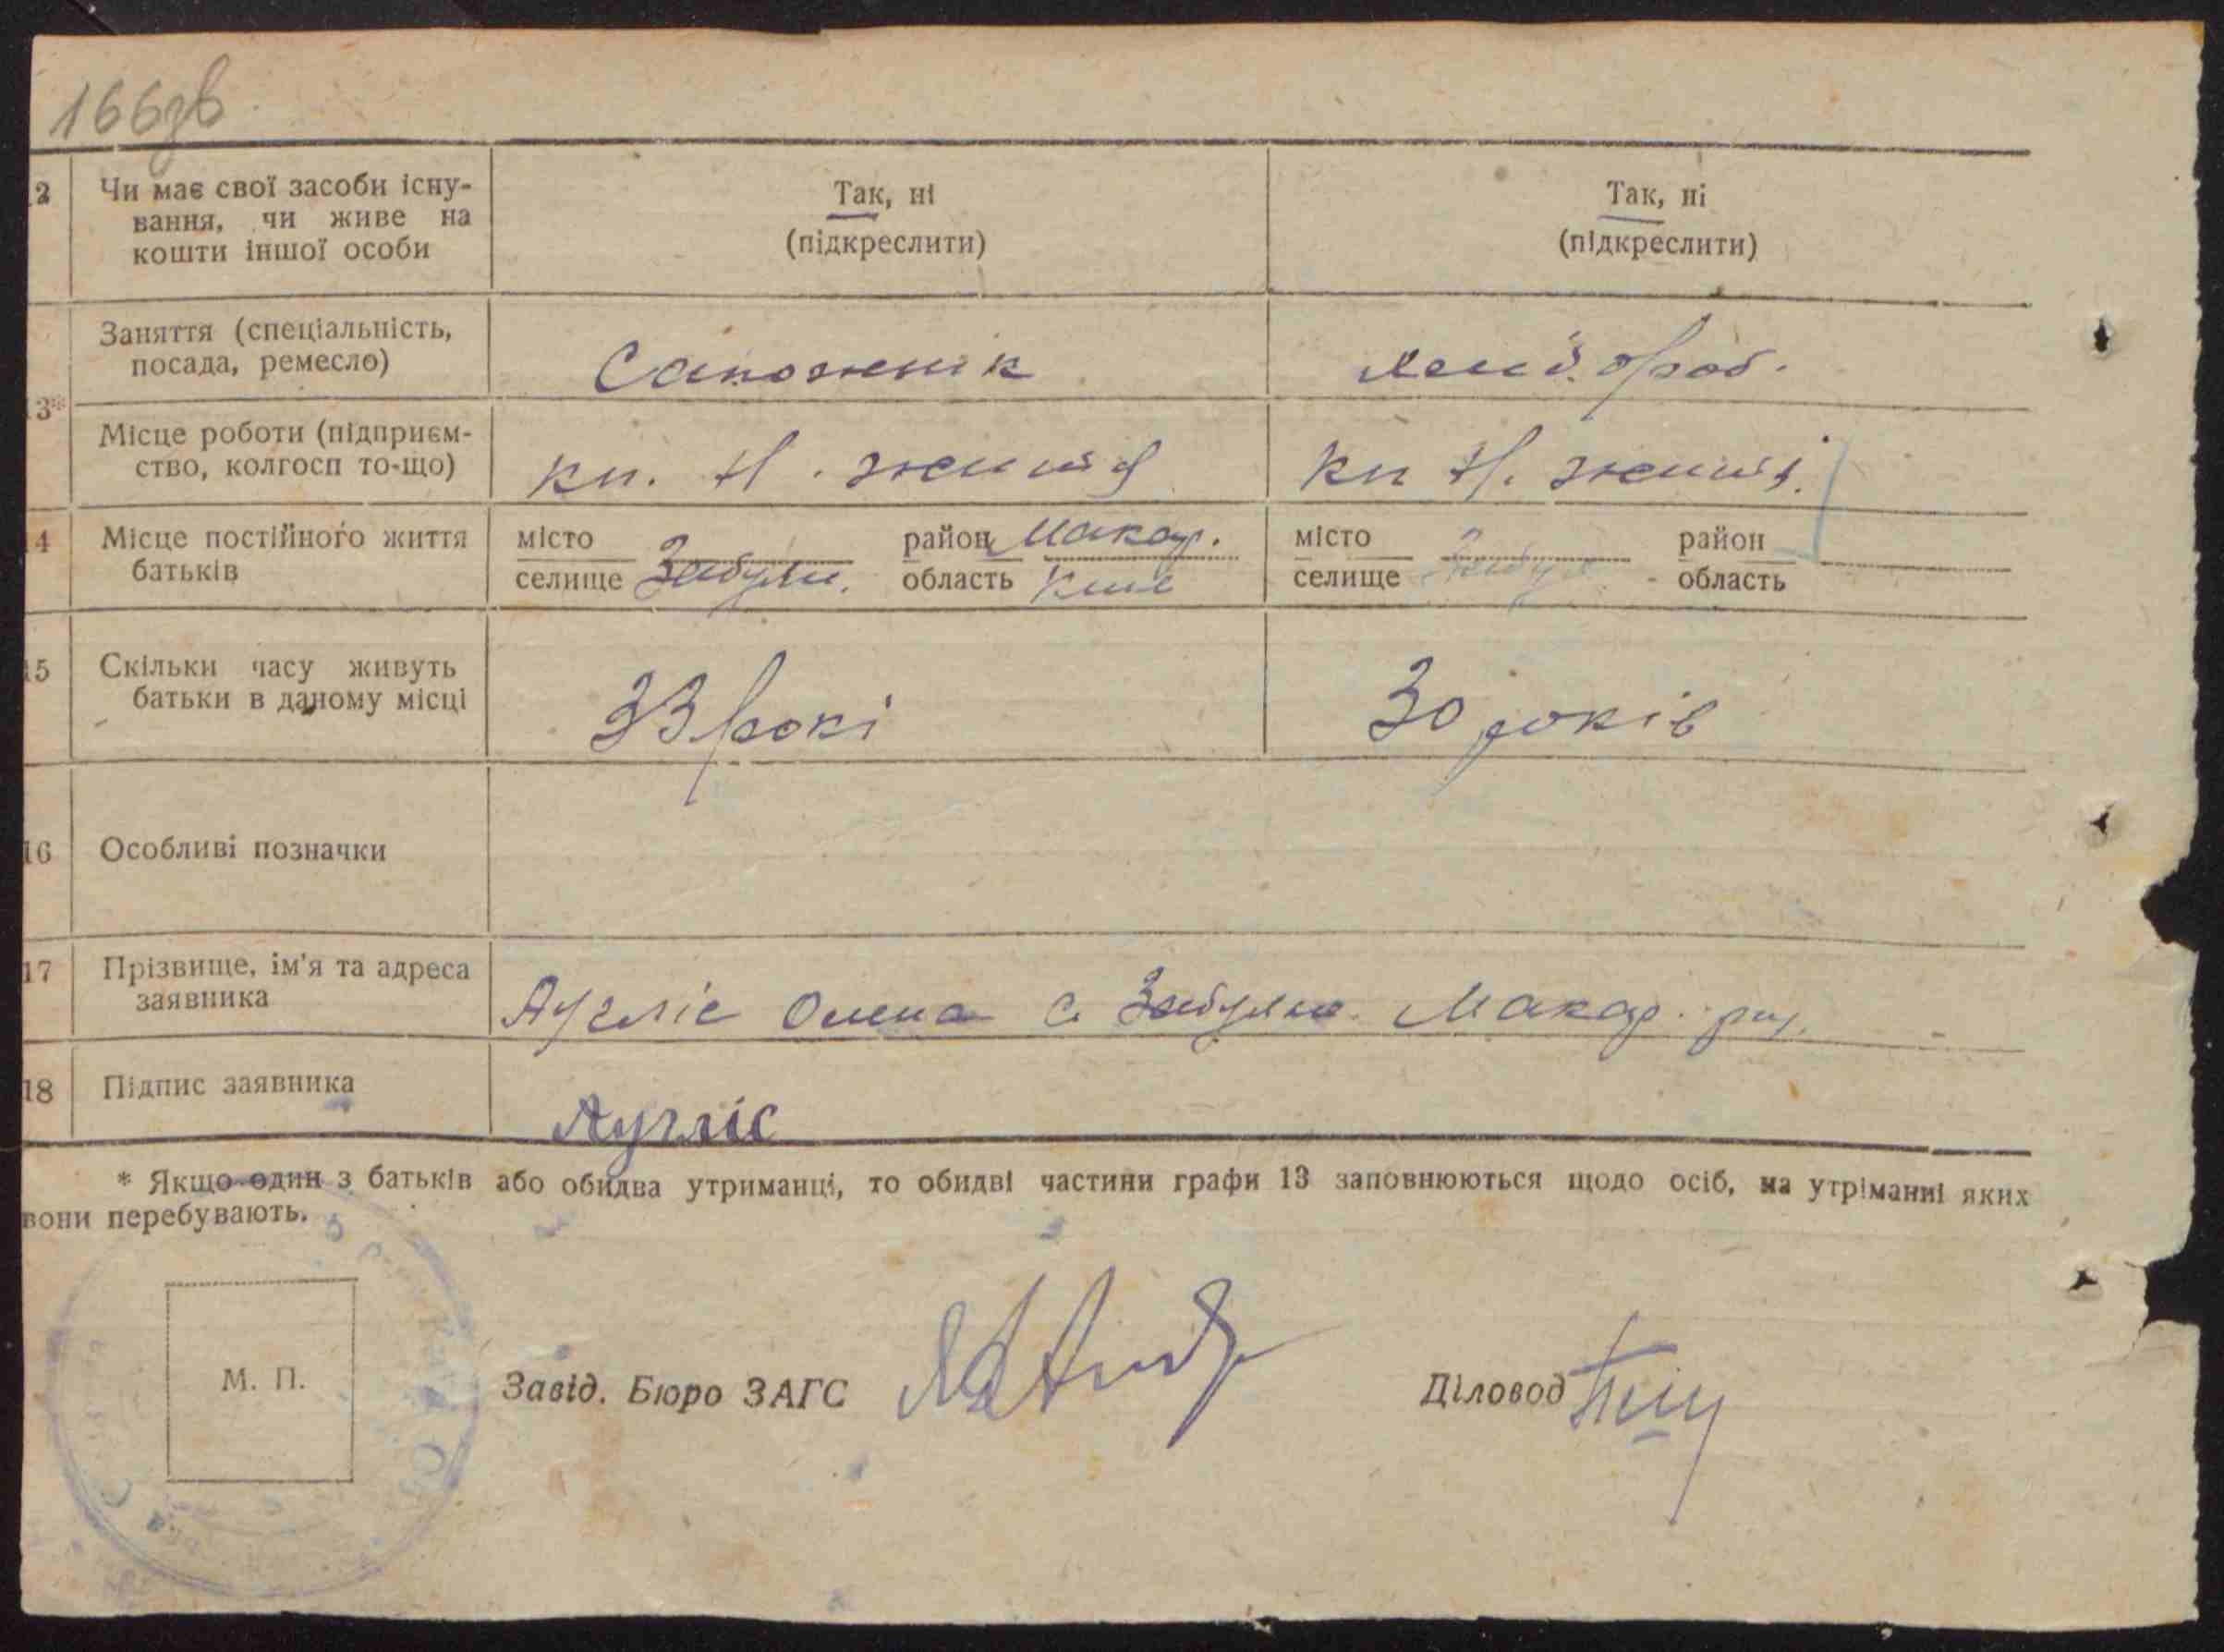 166зв
12 Чи має свої засоби існу-
вання, чи живе на
кошти іншої особи
Так, ні
(підкреслити)
Так, ні
(підкреслити)
Заняття (спеціальність,
посада, ремесло)
Сапожнік
13*
Місце роботи (підприєм-
ство, колгосп то-що)
кп. Н. життя
кп Н. життя
14 Місце постійного життя
батьків
місто район Макар.
селище область Київ
місто район
селище область
15 Скільки часу живуть
батьки в даному місці
33 рокі
30 років
16 Особливі позначки
17 Прізвище, ім'я та адреса
заявника
Аугліс Олена с. Макар. рн.
18 Підпис заявника
Аугліс
* Якщо один з батьків або обидва утриманці, то обидві частини графи 13 заповнюються щодо осіб, на утріманні яких
вони перебувають.
М. П.
Завід. Бюро ЗАГС
Діловод